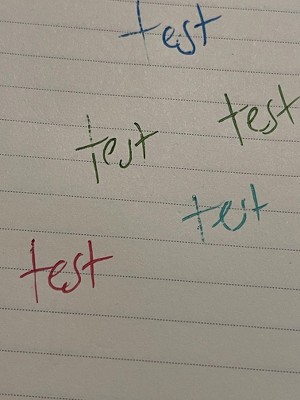 test
test
test
test
test